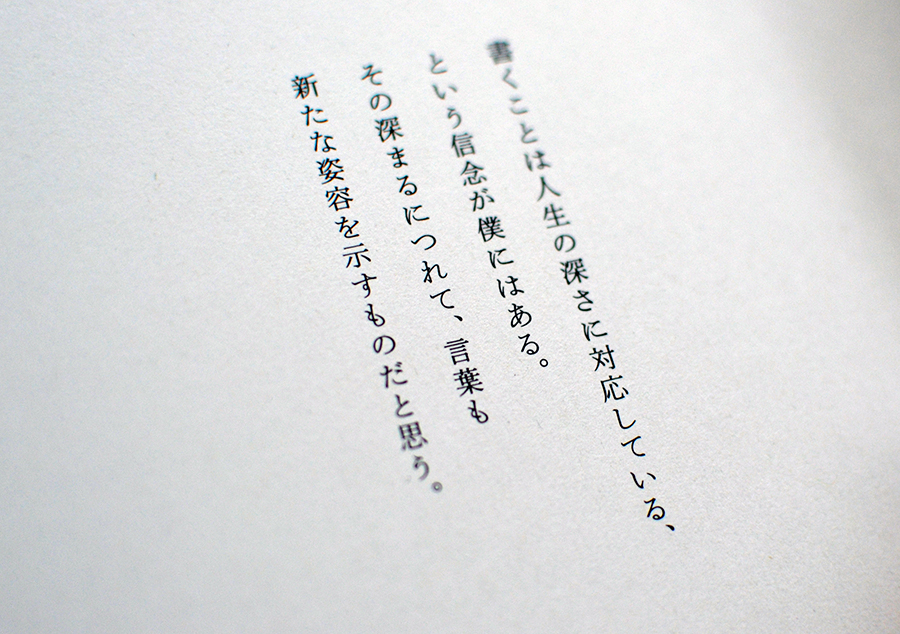 書くことは人生の深さに対応している、
という信念が僕にはある。
その深まるにつれて、言葉も
新たな姿容を示すものだと思う。